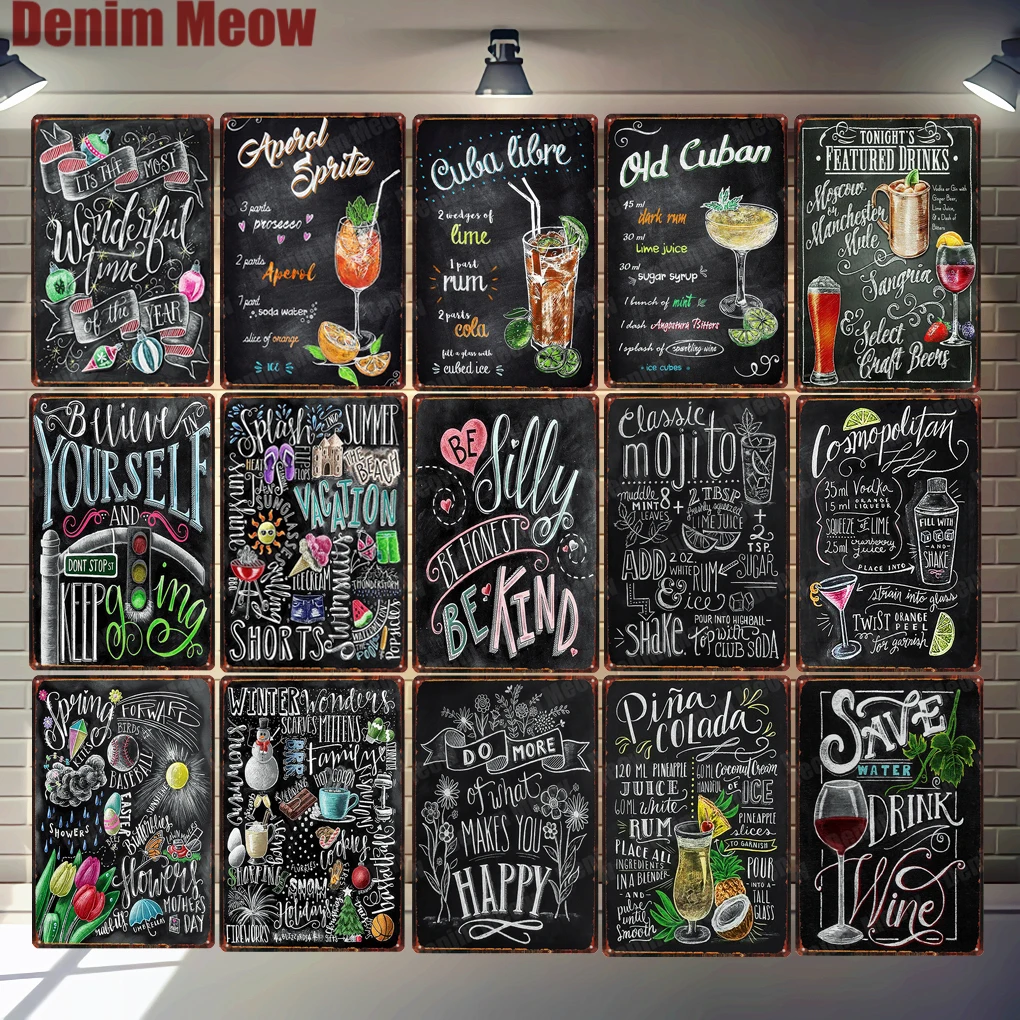 Denim Meow
IT'S THE MOST
Wonderful
Time
of the YEAR
Aperol
Spritz
3 parts
prosecco
2 parts
Aperol
1 part
soda water
slice of orange
ICE
Cuba libre
2 wedges of
lime
1 part
rum
2 parts
cola
fill a glass with
cubed ice
Old Cuban
45 ml
dark rum
30 ml
Lime juice
30 ml
sugar syrup
1 bunch of mint
1 dash Angostura Bitters
1 splash of sparkling wine
ice cubes
TONIGHT'S
FEATURED DRINKS
Moscow
or
Manchester
Mule
Vodka or Gin with
Ginger Beer,
Lime Juice,
& a Dash of
Bitters
Sangria
& Select
Craft Beers
Believe IN
YOURSELF
AND
DONT STOP ST
KEEP going
Splash INTO SUMMER
HEAT
FLIP FLOPS
THE BEACH
Sunshine
VACATION
ICE CREAM
BBQ
Grilling
Sunnies
THUNDERSTORM
WATERMELON
SHORTS
POOL
Popsicles
BE
Silly
BE HONEST
BE KIND
Classic
mojito
muddle 8
MINT LEAVES
+
2 TBSP
freshly squeezed
LIME JUICE
+
2
TSP.
SUGAR
ADD 2 OZ.
WHITE RUM
& ice
shake
POUR INTO HIGHBALL
top with
CLUB SODA
Cosmopolitan
35ml Vodka
15ml ORANGE LIQUEUR
SQUEEZE OF LIME
25ml cranberry juice
PLACE INTO
FILL WITH
ICE
AND
SHAKE
strain into glass
TWIST ORANGE PEEL
for garnish
Spring FORWARD
KITES
BIRDS
BASEBALL
SUNSHINE
SHOWERS
EASTER
Butterflies
flowers
MOTHERS
DAY
rabbits
UMBRELLAS
WINTER Wonders
SCARVES MITTENS
snowman
BRRR
family
SLEDDING
HOT COCOA
cookies
SHOPPING
SNOW
Holidays
basketball
FIREWORKS
DO MORE
of what
MAKES YOU
HAPPY
Piña
Colada
120 ML PINEAPPLE
JUICE
60ML White
RUM
PLACE ALL
INGREDIENTS
IN A BLENDER
AND
pulse
until
smooth
60ML Coconut Cream
HANDFUL OF
ICE
PINEAPPLE
slices
TO GARNISH
POUR
INTO A
TALL
GLASS
SAVE
WATER
DRINK
Wine